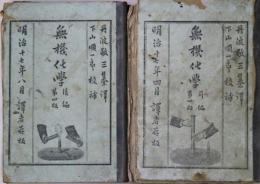 丹波敬三纂譯
下山順一郎校補
無機化學
後編
第四版
明治十七年八月
譯者蔵板
丹波敬三纂譯
下山順一郎校補
無機化學
前編
第四版
明治十七年四月
譯者蔵板